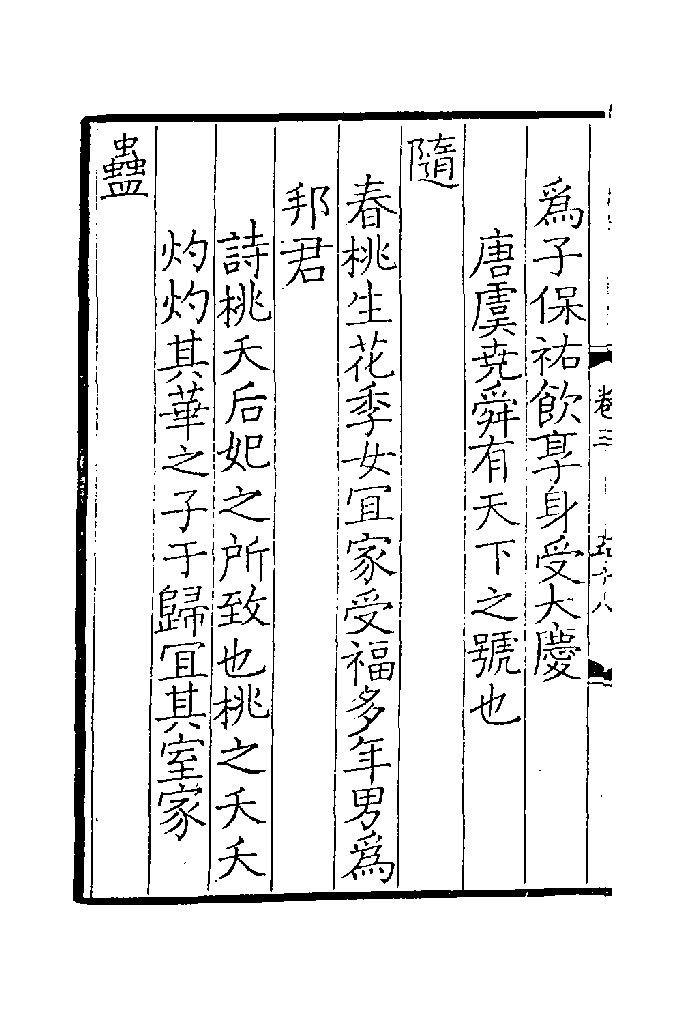 卷三
五十八
爲子保祐飲享身受大慶
唐虞尭舜有天下之號也
隨
春桃生花季女冝家受福多年男爲
邦君
詩桃夭后妃之所致也桃之夭夭
灼灼其華之子于歸冝其室家
蠱